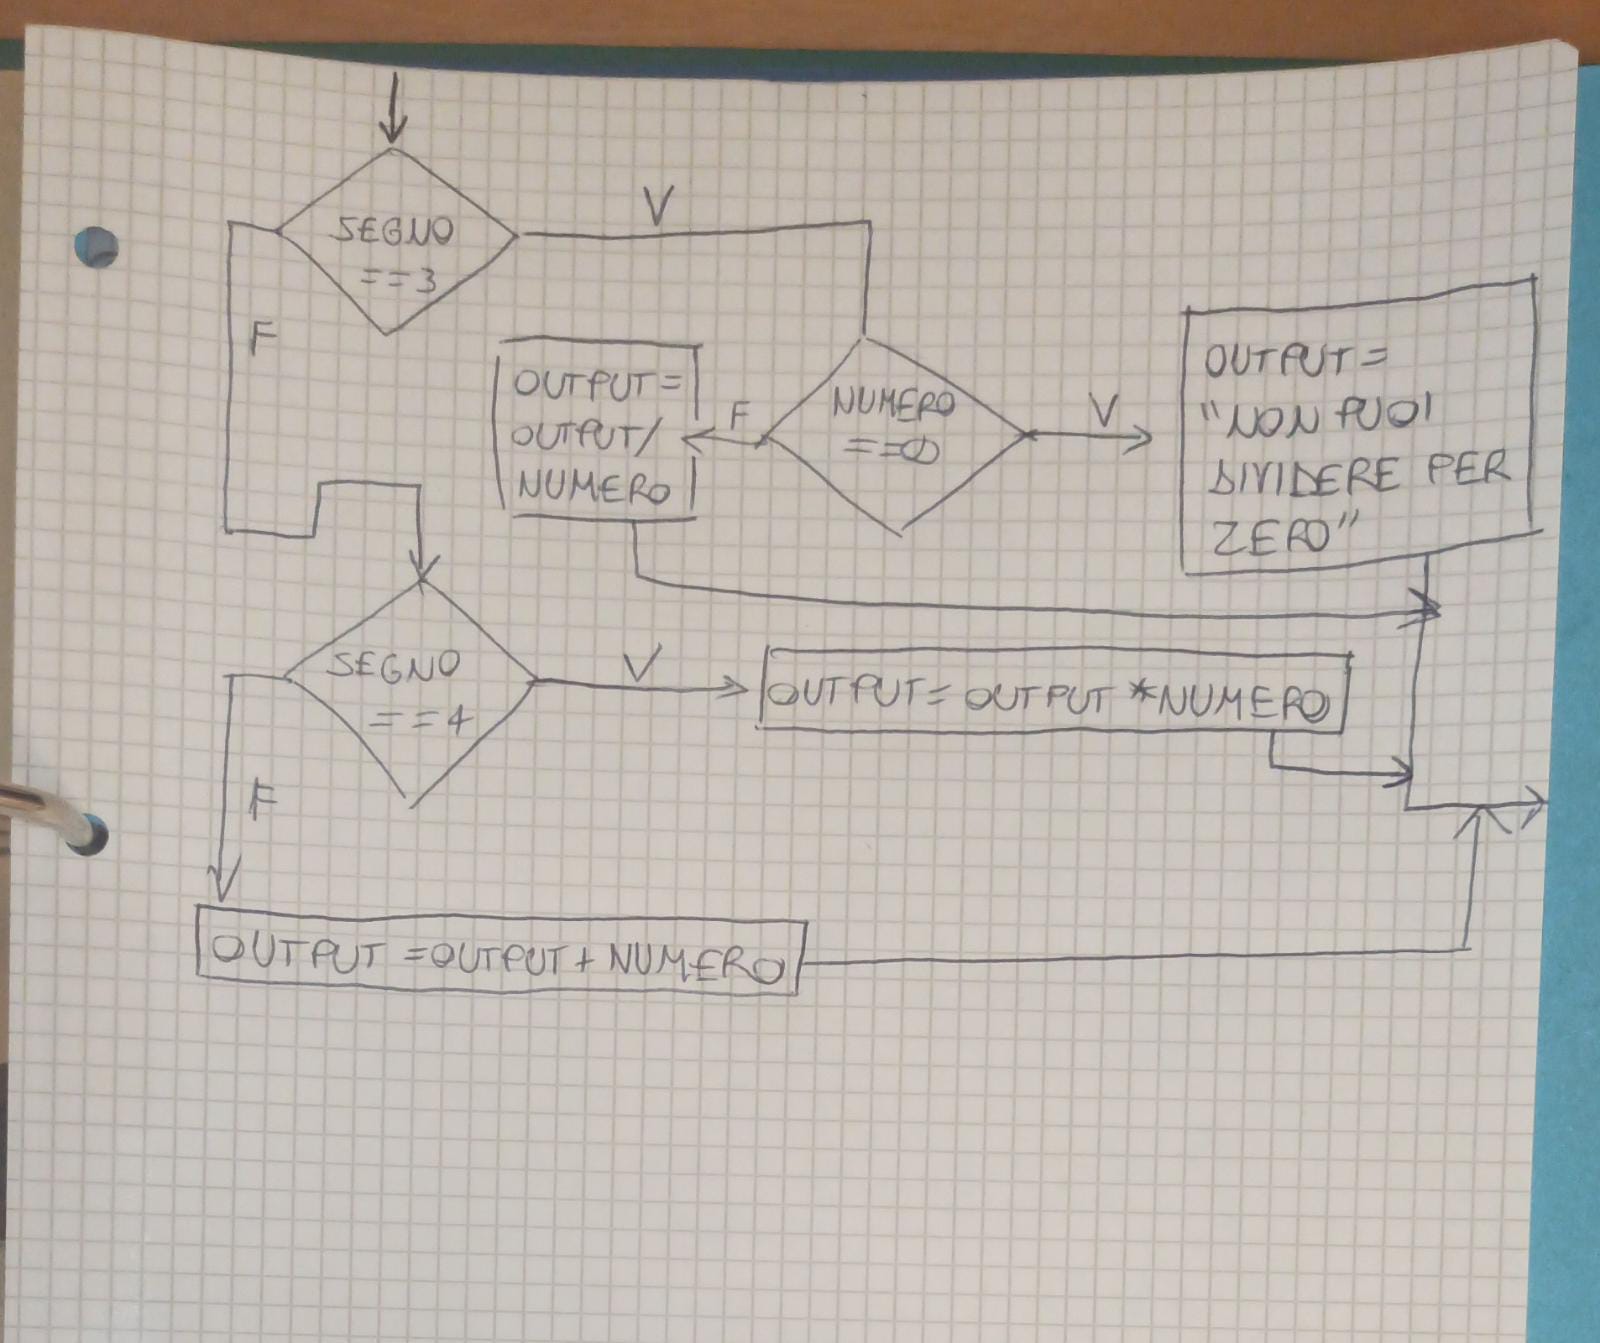 SEGNO
==3
V
F
OUTPUT=
OUTPUT/
NUMERO
F
NUMERO
==0
V
OUTPUT=
"NON PUOI
DIVIDERE PER
ZERO"
SEGNO
==4
V
OUTPUT= OUTPUT *NUMERO
F
OUTPUT =OUTPUT+ NUMERO